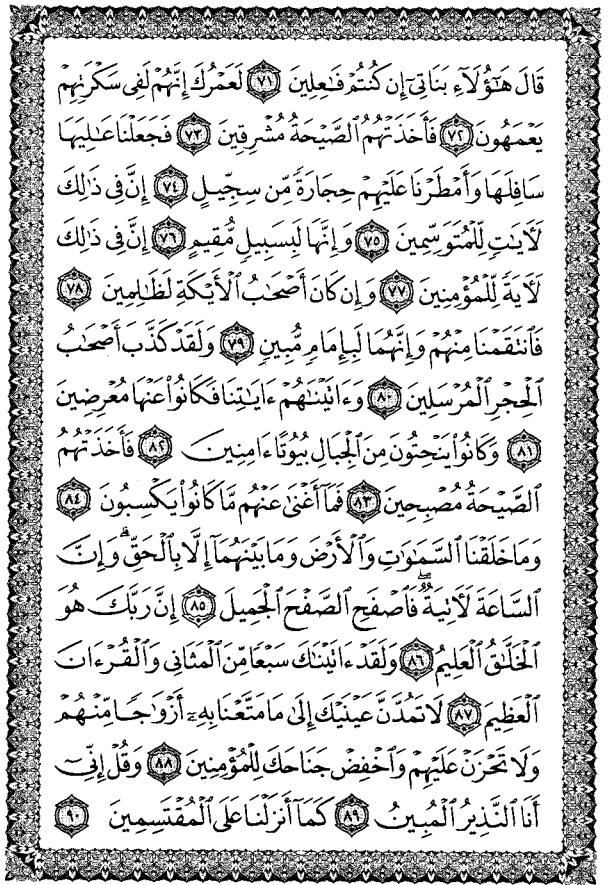 قَالَ هَٰٓؤُلَآءِ بَنَاتِىٓ إِن كُنتُمْ فَٰعِلِينَ ٧١ لَعَمْرُكَ إِنَّهُمْ لَفِى سَكْرَتِهِمْ
يَعْمَهُونَ ٧٢ فَأَخَذَتْهُمُ ٱلصَّيْحَةُ مُشْرِقِينَ ٧٣ فَجَعَلْنَا عَٰلِيَهَا
سَافِلَهَا وَأَمْطَرْنَا عَلَيْهِمْ حِجَارَةً مِّن سِجِّيلٍ ٧٤ إِنَّ فِى ذَٰلِكَ
لَءَايَٰتٍ لِّلْمُتَوَسِّمِينَ ٧٥ وَإِنَّهَا لَبِسَبِيلٍ مُّقِيمٍ ٧٦ إِنَّ فِى ذَٰلِكَ
لَءَايَةً لِّلْمُؤْمِنِينَ ٧٧ وَإِن كَانَ أَصْحَٰبُ ٱلْأَيْكَةِ لَظَٰلِمِينَ ٧٨
فَٱنتَقَمْنَا مِنْهُمْ وَإِنَّهُمَا لَبِإِمَامٍ مُّبِينٍ ٧٩ وَلَقَدْ كَذَّبَ أَصْحَٰبُ
ٱلْحِجْرِ ٱلْمُرْسَلِينَ ٨٠ وَءَاتَيْنَٰهُمْ ءَايَٰتِنَا فَكَانُوا۟ عَنْهَا مُعْرِضِينَ
٨١ وَكَانُوا۟ يَنْحِتُونَ مِنَ ٱلْجِبَالِ بُيُوتًا ءَامِنِينَ ٨٢ فَأَخَذَتْهُمُ
ٱلصَّيْحَةُ مُصْبِحِينَ ٨٣ فَمَآ أَغْنَىٰ عَنْهُم مَّا كَانُوا۟ يَكْسِبُونَ ٨٤
وَمَا خَلَقْنَا ٱلسَّمَٰوَٰتِ وَٱلْأَرْضَ وَمَا بَيْنَهُمَآ إِلَّا بِٱلْحَقِّ ۗ وَإِنَّ
ٱلسَّاعَةَ لَءَاتِيَةٌ ۖ فَٱصْفَحِ ٱلصَّفْحَ ٱلْجَمِيلَ ٨٥ إِنَّ رَبَّكَ هُوَ
ٱلْخَلَّٰقُ ٱلْعَلِيمُ ٨٦ وَلَقَدْ ءَاتَيْنَٰكَ سَبْعًا مِّنَ ٱلْمَثَانِى وَٱلْقُرْءَانَ
ٱلْعَظِيمَ ٨٧ لَا تَمُدَّنَّ عَيْنَيْكَ إِلَىٰ مَا مَتَّعْنَا بِهِۦٓ أَزْوَٰجًا مِّنْهُمْ
وَلَا تَحْزَنْ عَلَيْهِمْ وَٱخْفِضْ جَنَاحَكَ لِلْمُؤْمِنِينَ ٨٨ وَقُلْ إِنِّىٓ
أَنَا ٱلنَّذِيرُ ٱلْمُبِينُ ٨٩ كَمَآ أَنزَلْنَا عَلَى ٱلْمُقْتَسِمِينَ ٩٠